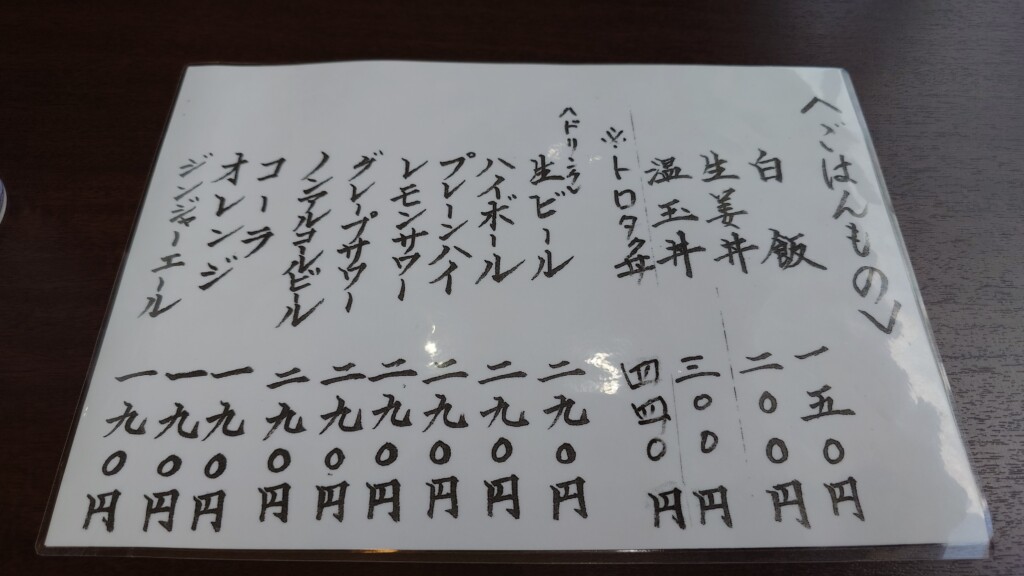 〈ごはんもの〉
白飯 一五〇円
生姜丼 二〇〇円
温玉丼 三〇〇円
※トロタク丼 四四〇円
〈ドリンク〉
生ビール 二九〇円
ハイボール 二九〇円
プレーンハイ 二九〇円
レモンサワー 二九〇円
グレープサワー 二九〇円
ノンアルコールビール 二九〇円
コーラ 一九〇円
オレンジ 一九〇円
ジンジャーエール 一九〇円